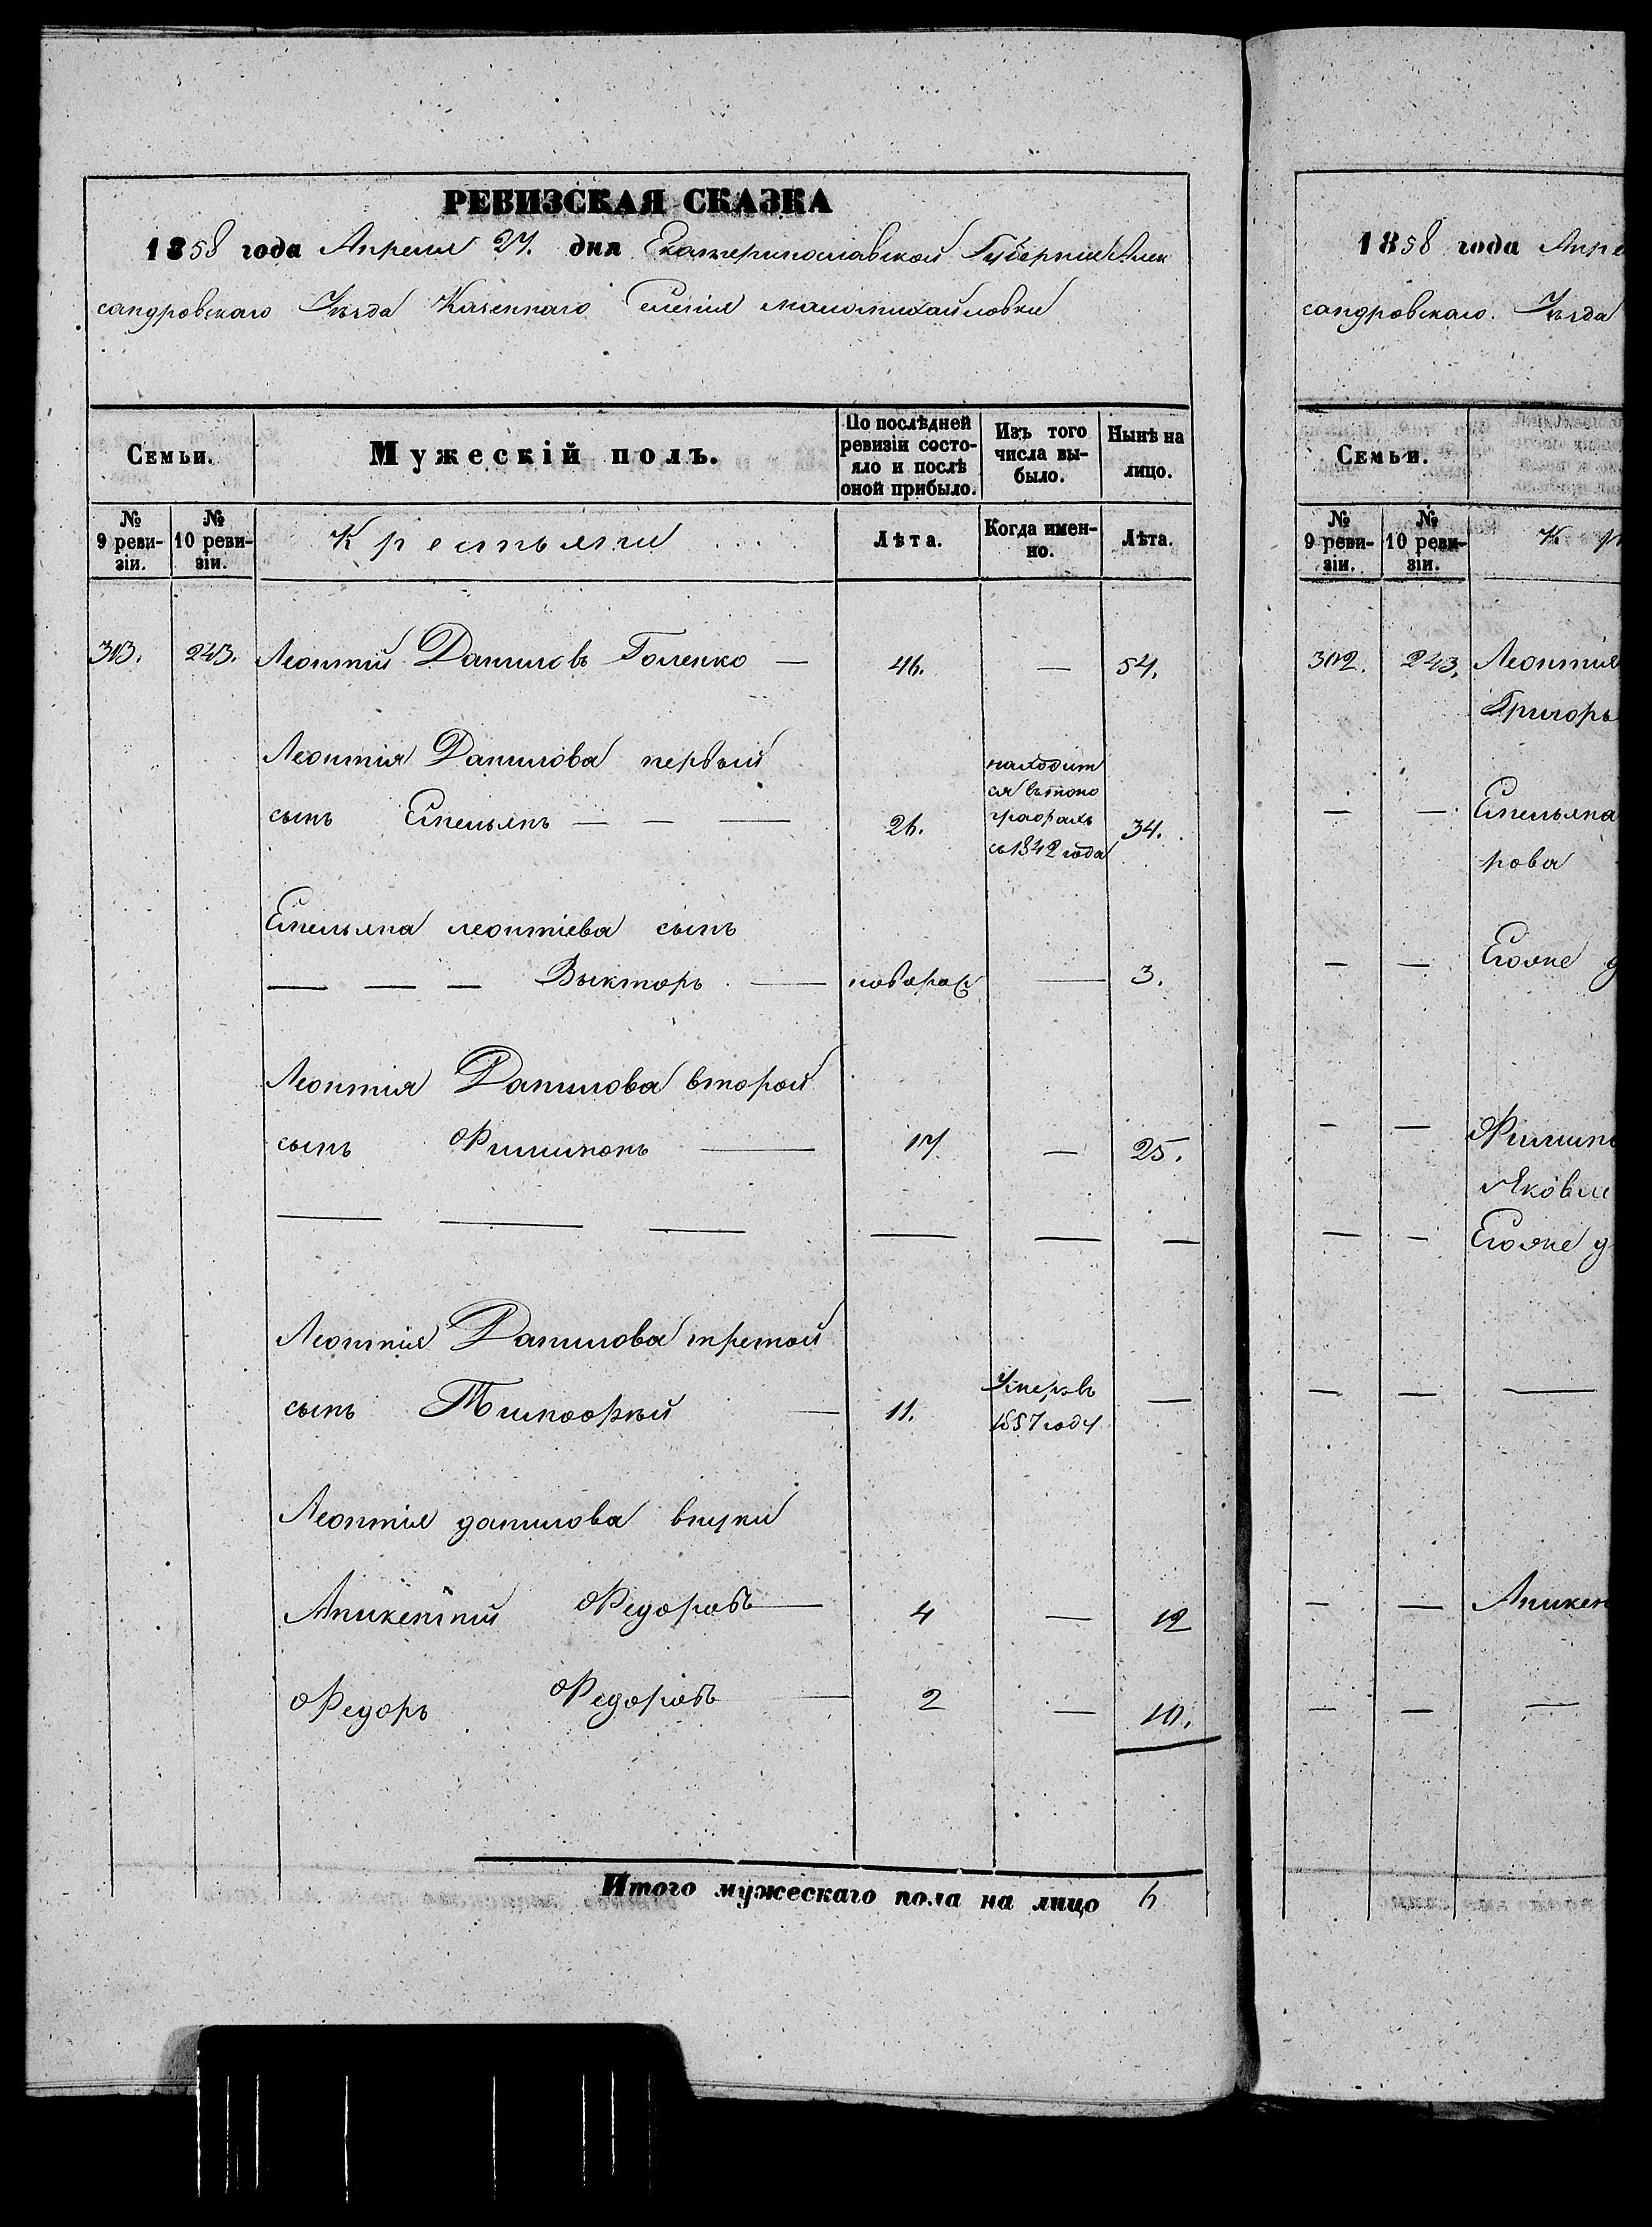 РЕВИЗСКАЯ СКАЗКА
1858 года Апреля 27. дня Екатеринославской Губернии Алек
сандровскаго Уѣзда Казеннаго Селенія маломихайловки
Семьи.
Мужескій полъ.
По послѣдней ревизіи состо-
яло и послѣ оной прибыло.
Изъ того числа вы-
было.
Нынѣ на лицо.
№ 9 реви-
зіи.
№ 10 реви-
зіи.
Крестьяни
Лѣта.
Когда имен-
но.
Лѣта.
313. 243. Леонтий Даниловъ Голенко — 46. — 54.
Леонтія Данилова первый
сынъ Емельянъ — — — 26. находит
ся въ топо
графахъ
съ 1842 года 34.
Емельяна леонтіева сынъ
— — — Выкторъ — новорож — 3.
Леонтія Данилова второй
сынъ Филимонъ — 17 — 25.
— — — — — —
Леонтія Данилова третой
сынъ Тимофѣй — 11. Умеръ въ
1857 году —
Леонтія данилова внуки
Аникентий Федоровъ — 4 — 12
Федоръ Федоровъ — 2 — 10.
Итого мужескаго пола на лицо 6
1858 года Апре
сандровскаго. Уѣзда
Семьи.
№ 9 реви-
зіи.
№ 10 реви-
зіи.
К р
312. 243. Леонтия
Григорь
— — Емельяна
рова
— — Егоже д
— — Филимо
Яковле
— — Егоже д
— — —
— — Аникен
— — —